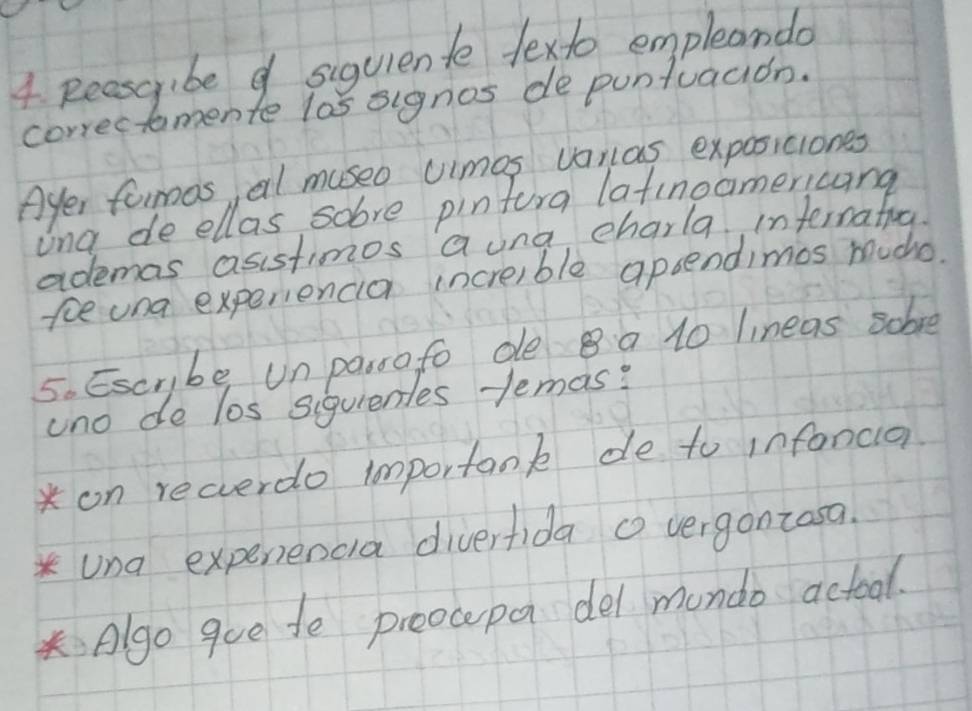 4. Reescribe el siguiente texto empleando
correctamente los signos de puntuación.
Ayer fuimos, al museo vimos varias exposiciones
una de ellas, sobre pintura latinoamericana
ademas asistimos a una, charla. internativa.
fue una experiencia increible aprendimos mucho.
5. Escribe un parrafo de 8 a 10 lineas sobre
uno de los siguientes temas:
* un recuerdo importante de tu infancia.
* Una experiencia divertida o vergonzosa.
* Algo que te preocupa del mundo actual.